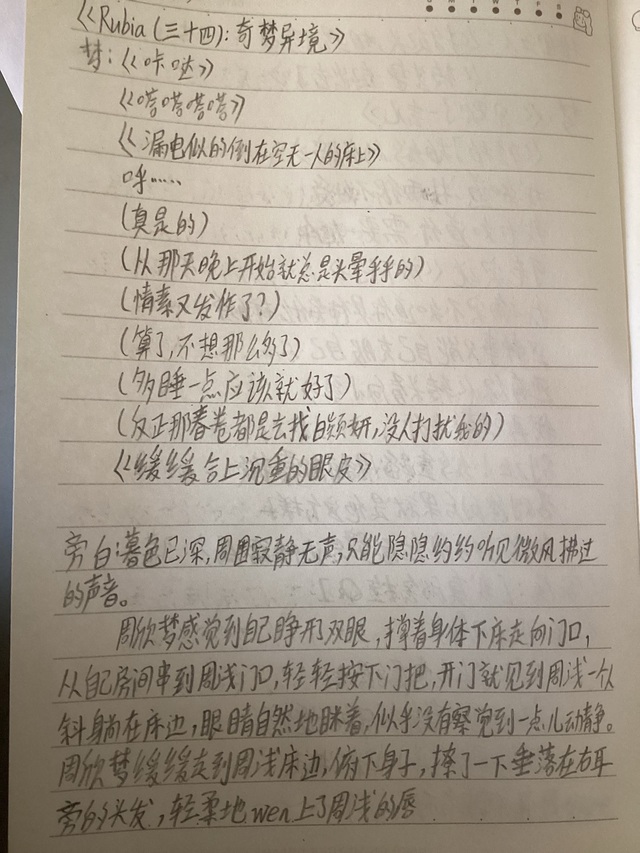 《Rubia(三十四):奇梦异境》
梦:《咔哒》
《嗒嗒嗒嗒》
《漏电似的倒在空无一人的床上》
呼……
(真是的)
(从那天晚上开始就总是头晕乎乎的)
(情素又发作了?)
(算了,不想那么多了)
(多睡一点应该就好了)
(反正那春卷都是去找白颎妍,没人打扰我的)
《缓缓合上沉重的眼皮》
旁白:暮色已深,周围寂静无声,只能隐隐约约听见微风拂过
的声音。
周欣梦感觉到自己睁开双眼,撑着身体下床走向门口,
从自己房间串到周浅门口,轻轻按下门把,开门就见到周浅一个人
斜身躺在床边,眼睛自然地眯着,似乎没有察觉到一点儿动静。
周欣梦缓缓走到周浅床边,俯下身子,撩了一下垂落在右耳
旁的头发,轻柔地wen上了周浅的唇